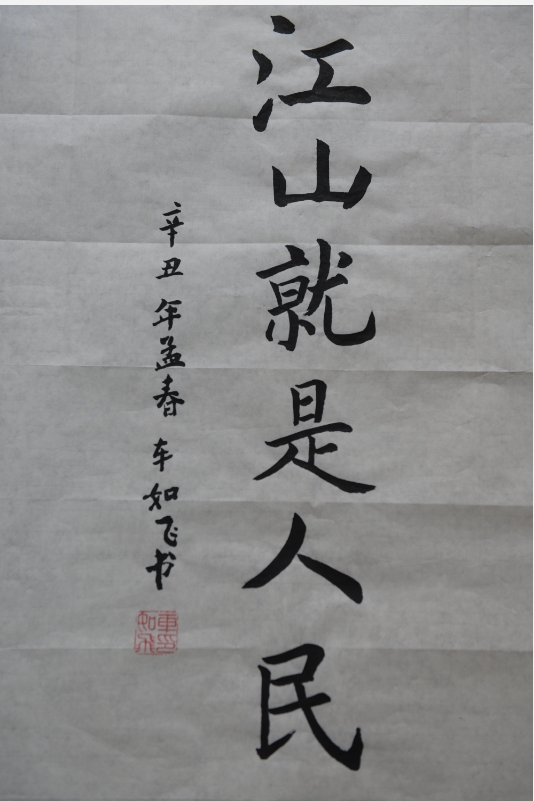 江山就是人民
辛丑年孟春 车如飞书
車印如飛